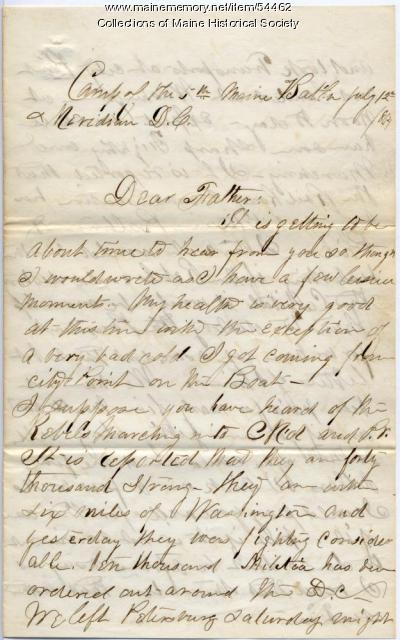 www.mainememory.net/item/54462
Collections of Maine Historical Society
Camp of the 5th Maine Batt'n July 12th
Meridian D.C. 1864
Dear Father:
It is getting to be
about time to hear from you so thought
I would write as I have a few leisure
moments. My health is very good
at this time with the exception of
a very bad cold I got coming from
city Point on the Boat—
I suppose you have heard of the
Rebels marching into Md and
It is reported that they are forty
thousand strong they are with
six miles of Washington and
yesterday they were fighting consider
able. Ten thousand Militia has been
ordered out around the D.C.
We left Petersburg Saturday night